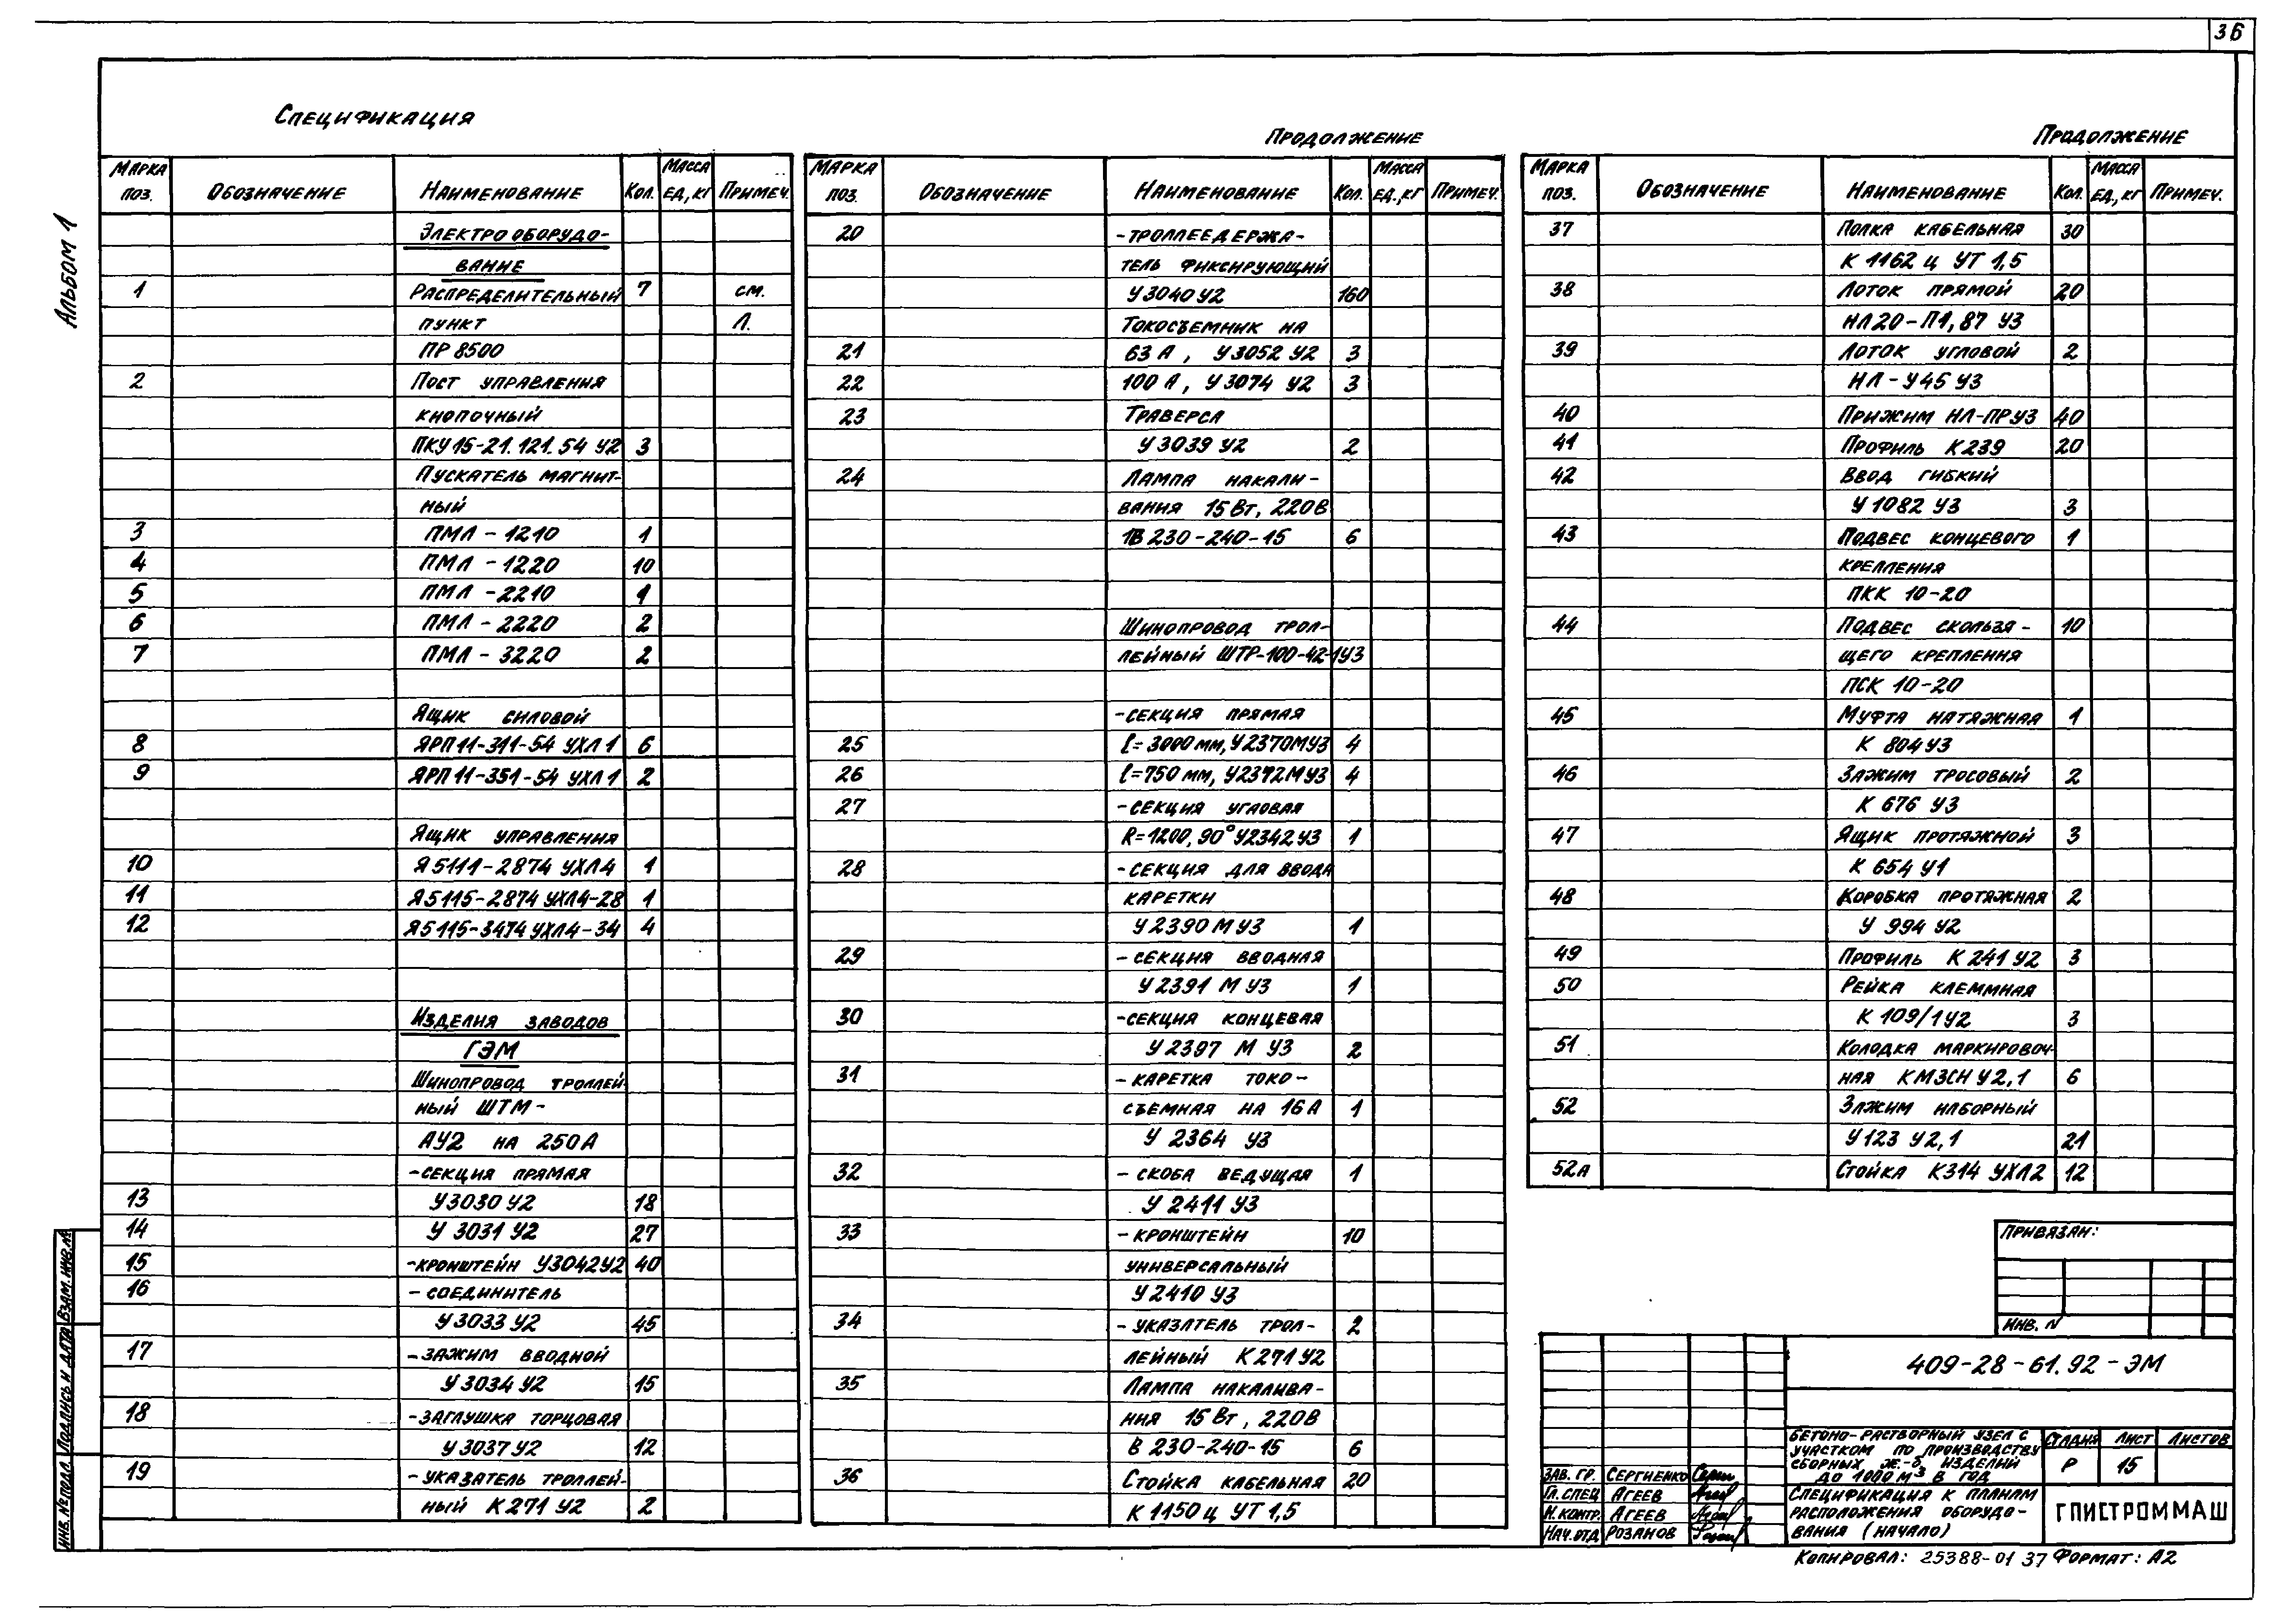 36
Альбом 1
Спецификация
Марка поз. Обозначение Наименование Кол. Масса ед, кг Примеч.
Электрооборудо-
вание
1 Распределительный 7 см.
пункт Л.
ПР 8500
2 Пост управления
кнопочный
ПКУ 15-21.121.54 У2 3
Пускатель магнит-
ный
3 ПМЛ - 1210 1
4 ПМЛ - 1220 10
5 ПМЛ - 2210 1
6 ПМЛ - 2220 2
7 ПМЛ - 3220 2
Ящик силовой
8 ЯРП 11-311-54 УХЛ 1 6
9 ЯРП 11-351-54 УХЛ 1 2
Ящик управления
10 Я 5111-2874 УХЛ4 1
11 Я5115-2874 УХЛ4-28 1
12 Я5115-3474 УХЛ4-34 4
Изделия заводов
ГЭМ
Шинопровод троллей-
ный ШТМ -
АУ2 на 250А
- секция прямая
13 У3030 У2 18
14 У 3031 У2 27
15 - кронштейн У3042У2 40
16 - соединитель
У 3033 У2 45
17 - зажим вводной
У 3034 У2 15
18 - заглушка торцовая
У 3037 У2 12
19 - указатель троллей-
ный К 271 У2 2
Продолжение
Марка поз. Обозначение Наименование Кол. Масса ед., кг Примеч.
20 - троллеедержа-
тель фиксирующий
У 3040 У2 160
Токосъемник на
21 63 А, У 3052 У2 3
22 100 А, У 3074 У2 3
23 Траверса
У 3039 У2 2
24 Лампа накали-
вания 15 Вт, 220В
1В 230-240-15 6
Шинопровод трол-
лейный ШТР-100-42-1У3
- секция прямая
25 ℓ = 3000 мм, У2370МУ3 4
26 ℓ = 750 мм, У2372М У3 4
27 - секция угловая
R = 1200, 90° У2342 У3 1
28 - секция для ввода
каретки
У 2390 М У3 1
29 - секция вводная
У 2391 М У3 1
30 - секция концевая
У 2397 М У3 2
31 - каретка токо-
съемная на 16 А 1
У 2364 У3
32 - скоба ведущая 1
У 2411 У3
33 - кронштейн 10
универсальный
У 2410 У3
34 - указатель трол- 2
лейный К 271 У2
35 Лампа накалива-
ния 15 Вт, 220В
В 230-240-15 6
36 Стойка кабельная 20
К 1150 ц УТ 1,5
Продолжение
Марка поз. Обозначение Наименование Кол. Масса ед., кг Примеч.
37 Полка кабельная 30
К 1162 ц УТ 1,5
38 Лоток прямой 20
НЛ20-П1,87 У3
39 Лоток угловой 2
НЛ-У45 У3
40 Прижим НЛ-ПРУ3 40
41 Профиль К239 20
42 Ввод гибкий
У 1082 У3 3
43 Подвес концевого 1
крепления
ПКК 10-20
44 Подвес скользя- 10
щего крепления
ПСК 10-20
45 Муфта натяжная 1
К 804 У3
46 Зажим тросовый 2
К 676 У3
47 Ящик протяжной 3
К 654 У1
48 Коробка протяжная 2
У 994 У2
49 Профиль К 241 У2 3
50 Рейка клеммная
К 109/1 У2 3
51 Колодка маркировоч-
ная КМ3СН У2,1 6
52 Зажим наборный
У123 У2,1 21
52А Стойка К314 УХЛ2 12
Привязан:
Инв. N
409-28-61.92-ЭМ
Бетоно-растворный узел с
участком по производству
сборных ж.-б. изделий
до 1000 м³ в год
Стадия Лист Листов
Р 15
Зав. гр. Сергиенко
Гл. спец Агеев
Н. контр. Агеев
Нач. отд Розанов
Спецификация к планам
расположения оборудо-
вания (начало)
ГПИСТРОММАШ
Инв. № подл. Подпись и дата Взам. инв. №
Копировал: 25388-01 37 Формат: А2